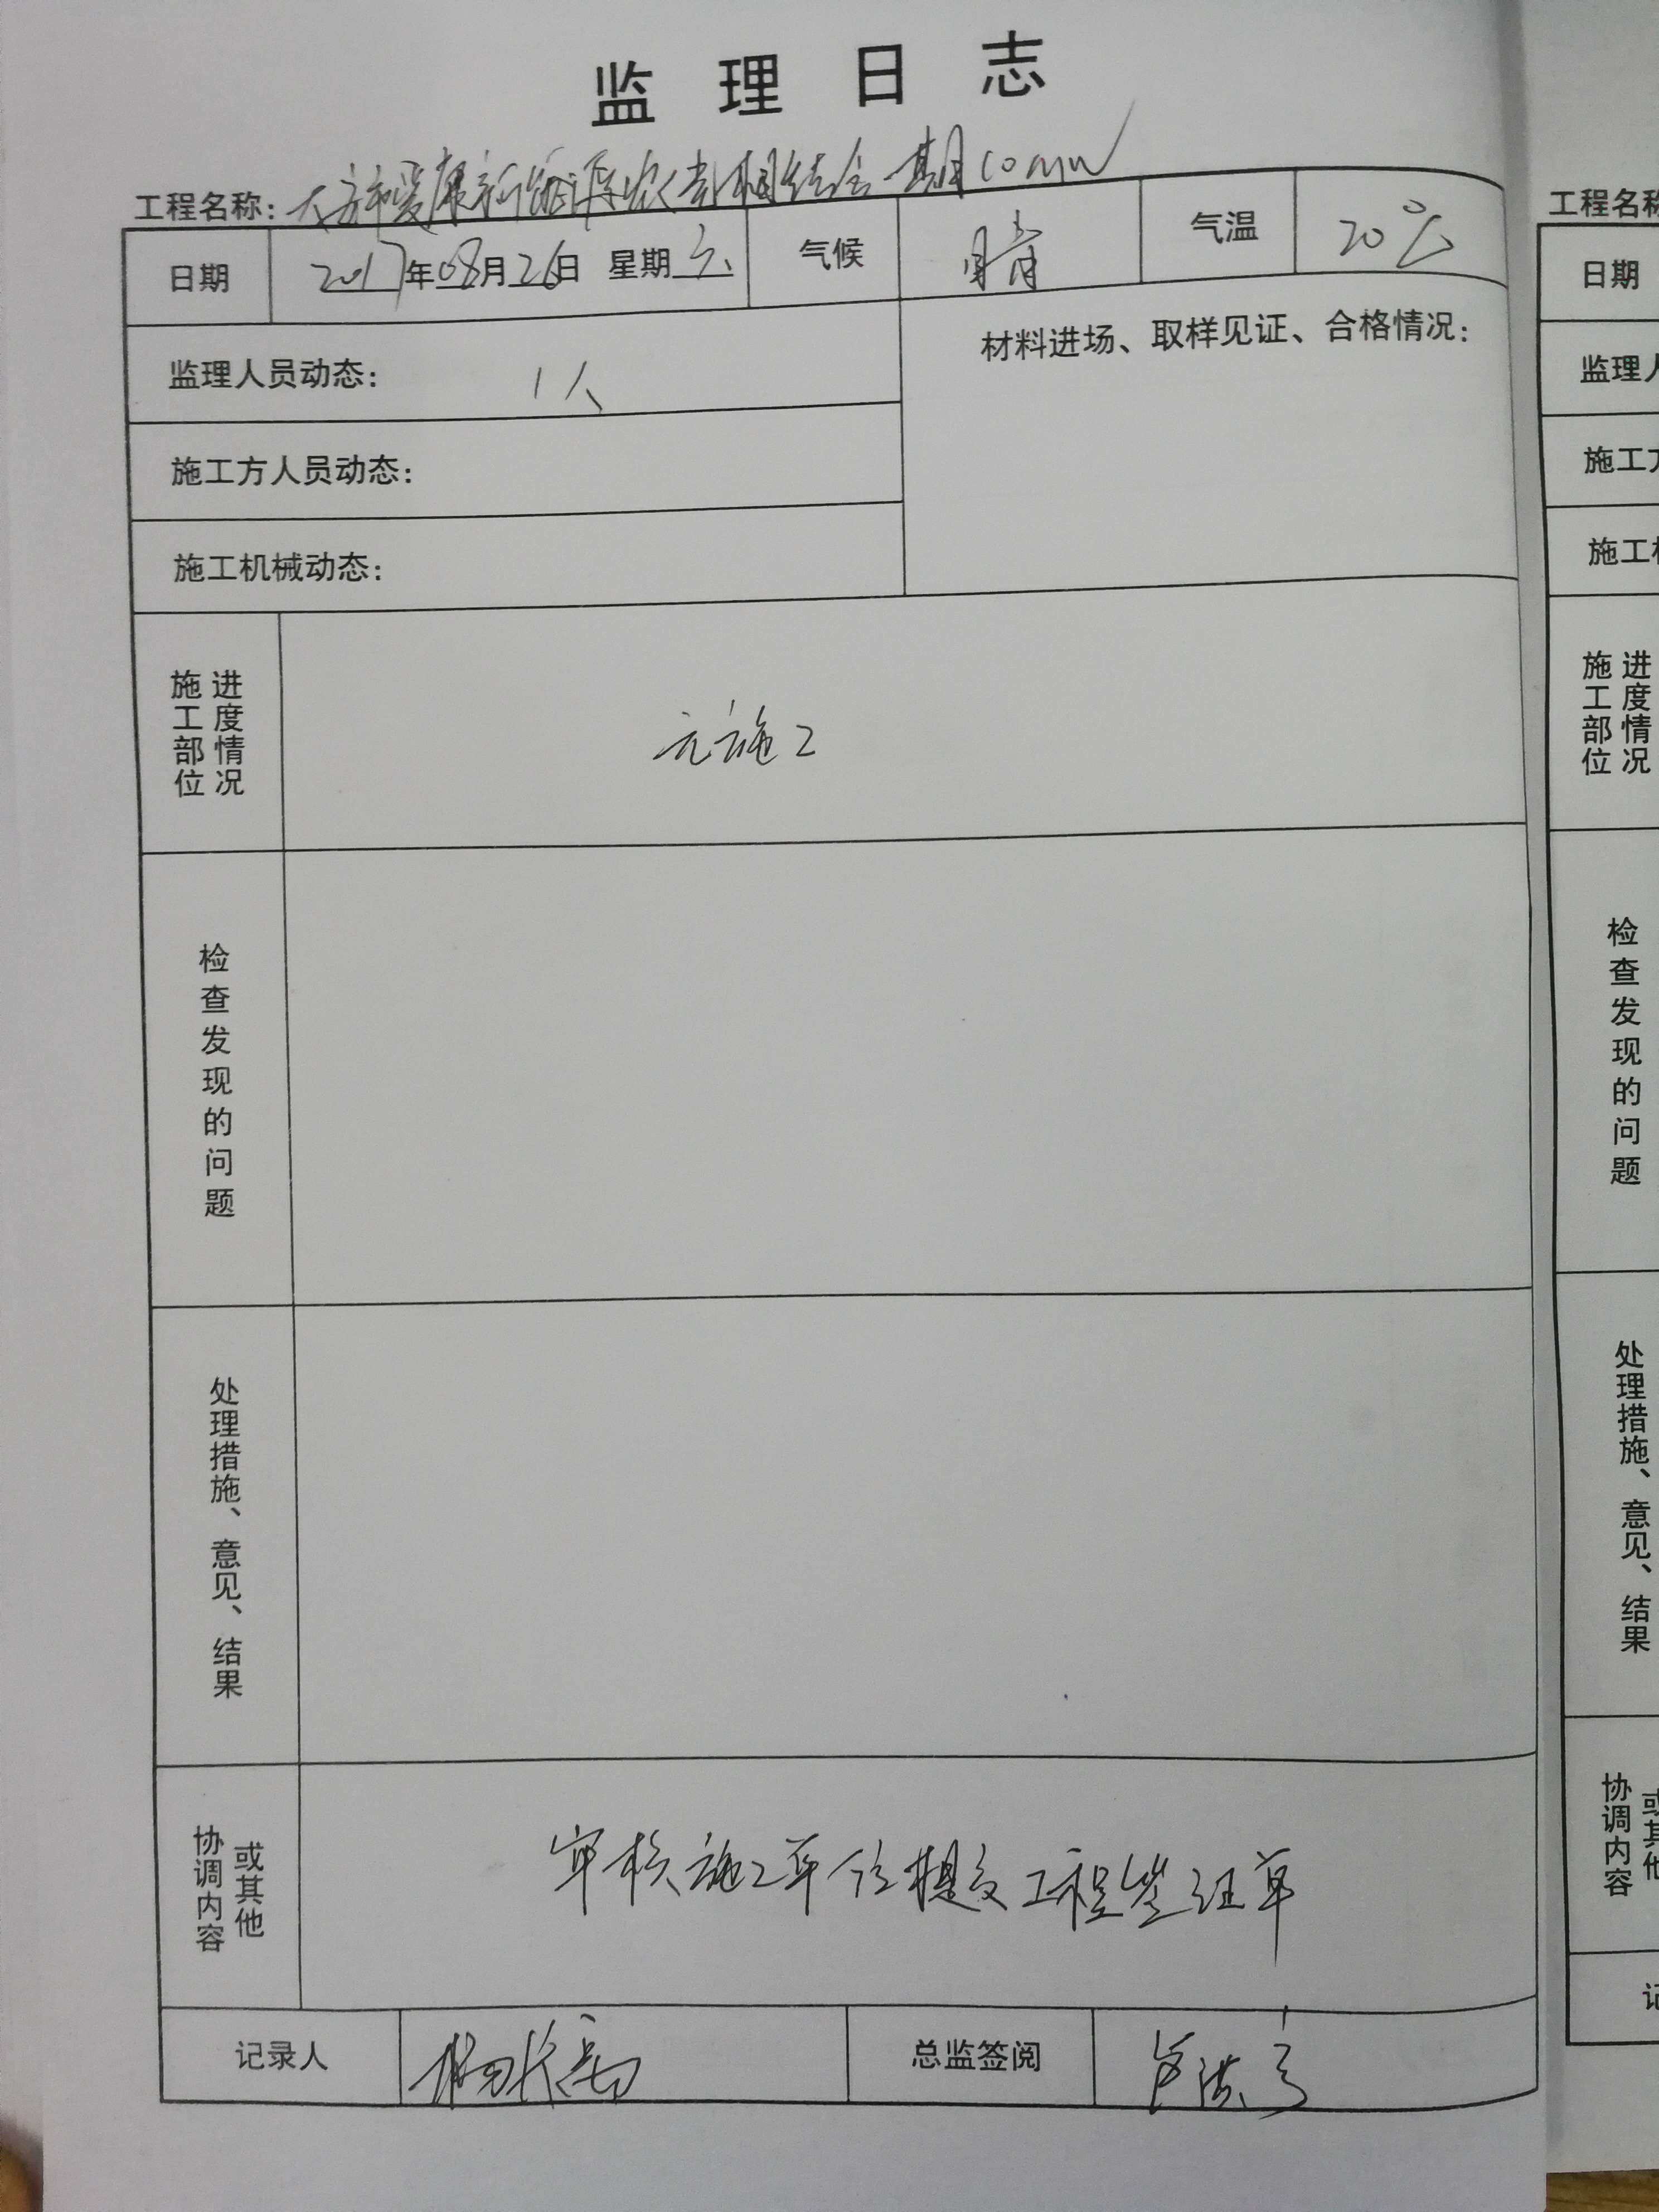 监理日志
工程名称：大方 爱康新能源农 相结合一期10MW
日期 2017年08月26日 星期六 气候 晴 气温 20℃
监理人员动态： 1人 材料进场、取样见证、合格情况：
施工方人员动态：
施工机械动态：
施工部位 进度情况 无施工
检查发现的问题
处理措施、意见、结果
协调内容 或其他 审核施工单位提交工程签证单
记录人 总监签阅
工程名称
日期
监理人
施工方
施工机
施工部位 进度情况
检查发现的问题
处理措施、意见、结果
协调内容 或其他
记